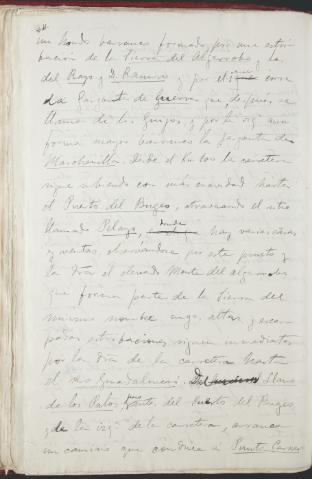 un hondo barranco formado, por una estri
bacion de la Sierra del Algarrobo y las
del Rayo y D. Ramiro y por el que corre
la Garganta de que, despues, se
llama de los y por la izqª aun
forma mayor barranco la garganta de
Marchenilla. Desde el la carretera
sigue subiendo con más suavidad hasta
el Puerto del Bujeo, atravesando el sitio
llamado Pelayo, donde hay varias casas
y ventas, observándose por este punto y
la dra el elevado Monte del Algarrobo
que forma parte de la Sierra del
mismo nombre cuyas, altas, y escar
padas estribaciones, siguen inmediatas
por la dra de la carretera hasta
el rio Guadalmesi. Del Llano
de los Palos, del Puerto del Bujeo
y de la izqª de la carretera, arranca
un camino que conduce a Punta Carnero